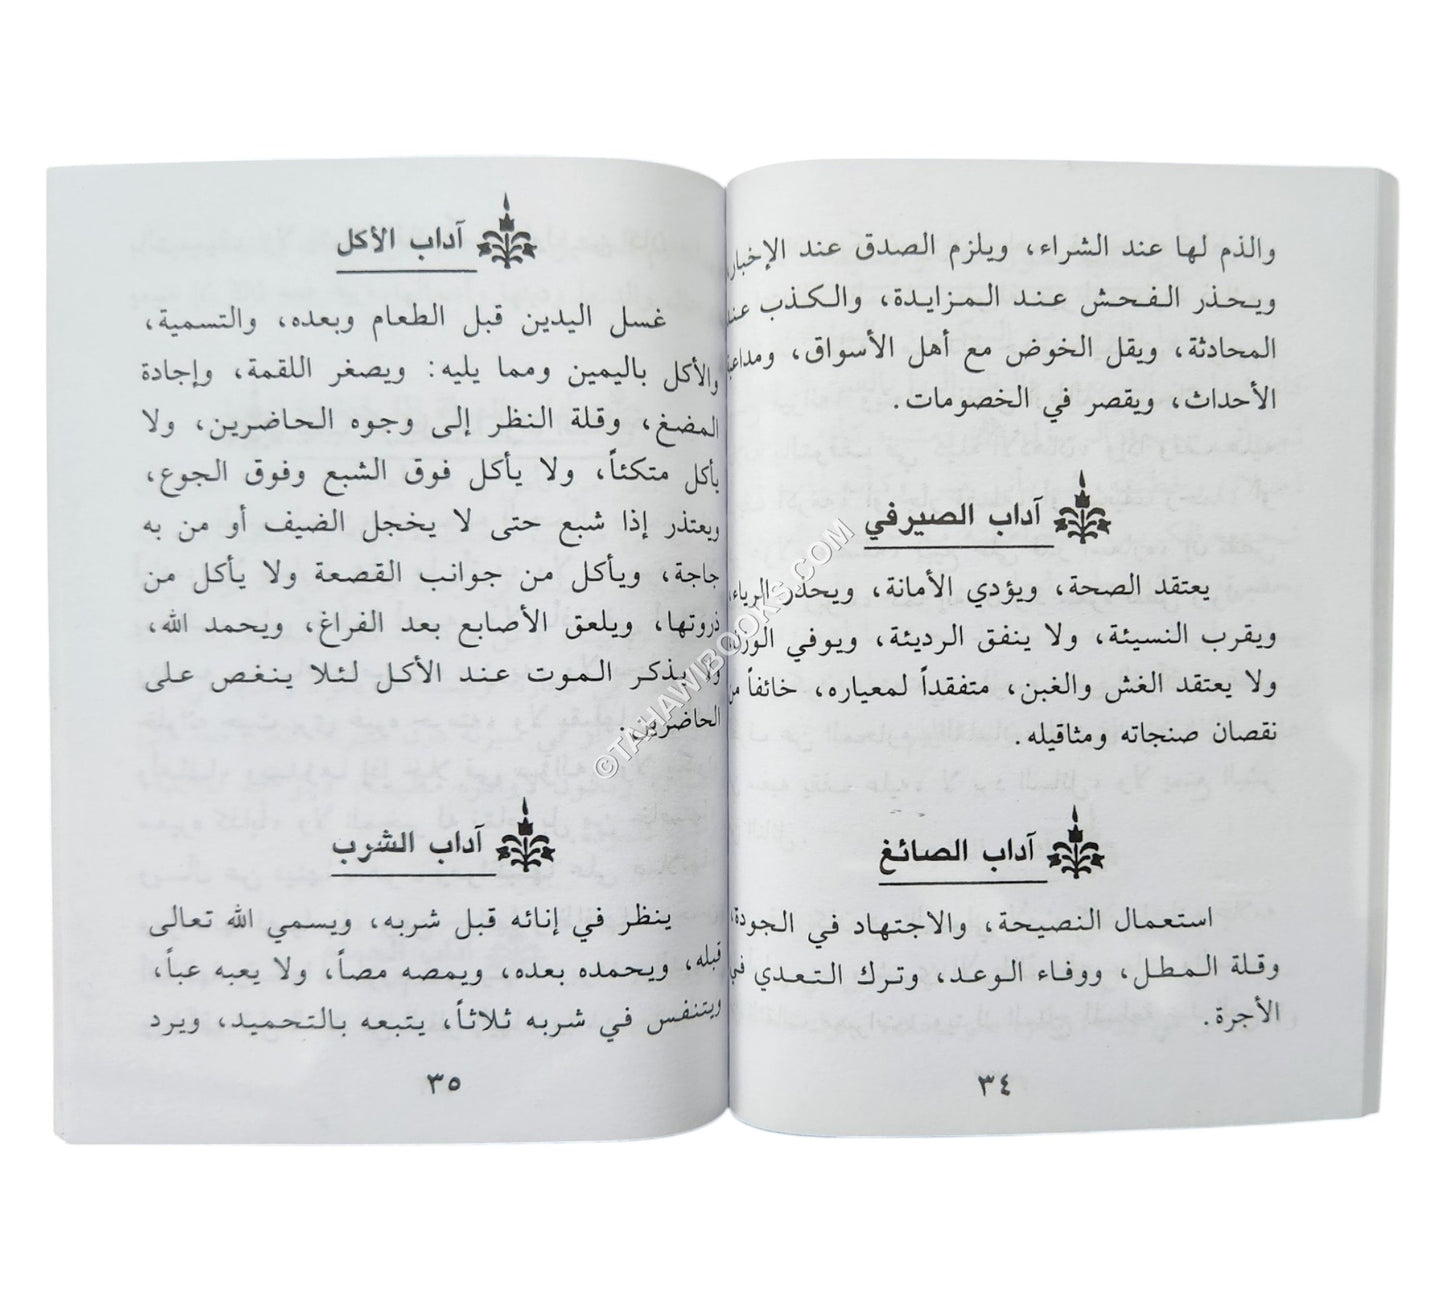 والذم لها عند الشراء، ويلزم الصدق عند الإخبار،
ويحذر الفحش عند المزايدة، والكذب عند
المحادثة، ويقل الخوض مع أهل الأسواق، ومداعبة
الأحداث، ويقصر في الخصومات.
آداب الصيرفي
يعتقد الصحة، ويؤدي الأمانة، ويحذر الرياء،
ويقرب النسيئة، ولا ينفق الرديئة، ويوفي الوزن،
ولا يعتقد الغش والغبن، متفقداً لمعياره، خائفاً من
نقصان صنجاته ومثاقيله.
آداب الصائغ
استعمال النصيحة، والاجتهاد في الجودة،
وقلة المطل، ووفاء الوعد، وترك التعدي في
الأجرة.
٣٤
آداب الأكل
غسل اليدين قبل الطعام وبعده، والتسمية،
والأكل باليمين ومما يليه: ويصغر اللقمة، وإجادة
المضغ، وقلة النظر إلى وجوه الحاضرين، ولا
يأكل متكئاً، ولا يأكل فوق الشبع وفوق الجوع،
ويعتذر إذا شبع حتى لا يخجل الضيف أو من به
حاجة، ويأكل من جوانب القصعة ولا يأكل من
ذروتها، ويلعق الأصابع بعد الفراغ، ويحمد الله،
ولا يذكر الموت عند الأكل لئلا ينغص على
الحاضرين.
آداب الشرب
ينظر في إنائه قبل شربه، ويسمي الله تعالى
قبله، ويحمده بعده، ويمصه مصاً، ولا يعبه عباً،
ويتنفس في شربه ثلاثاً، يتبعه بالتحميد، ويرد
٣٥
©TAHAWIBOOKS.COM